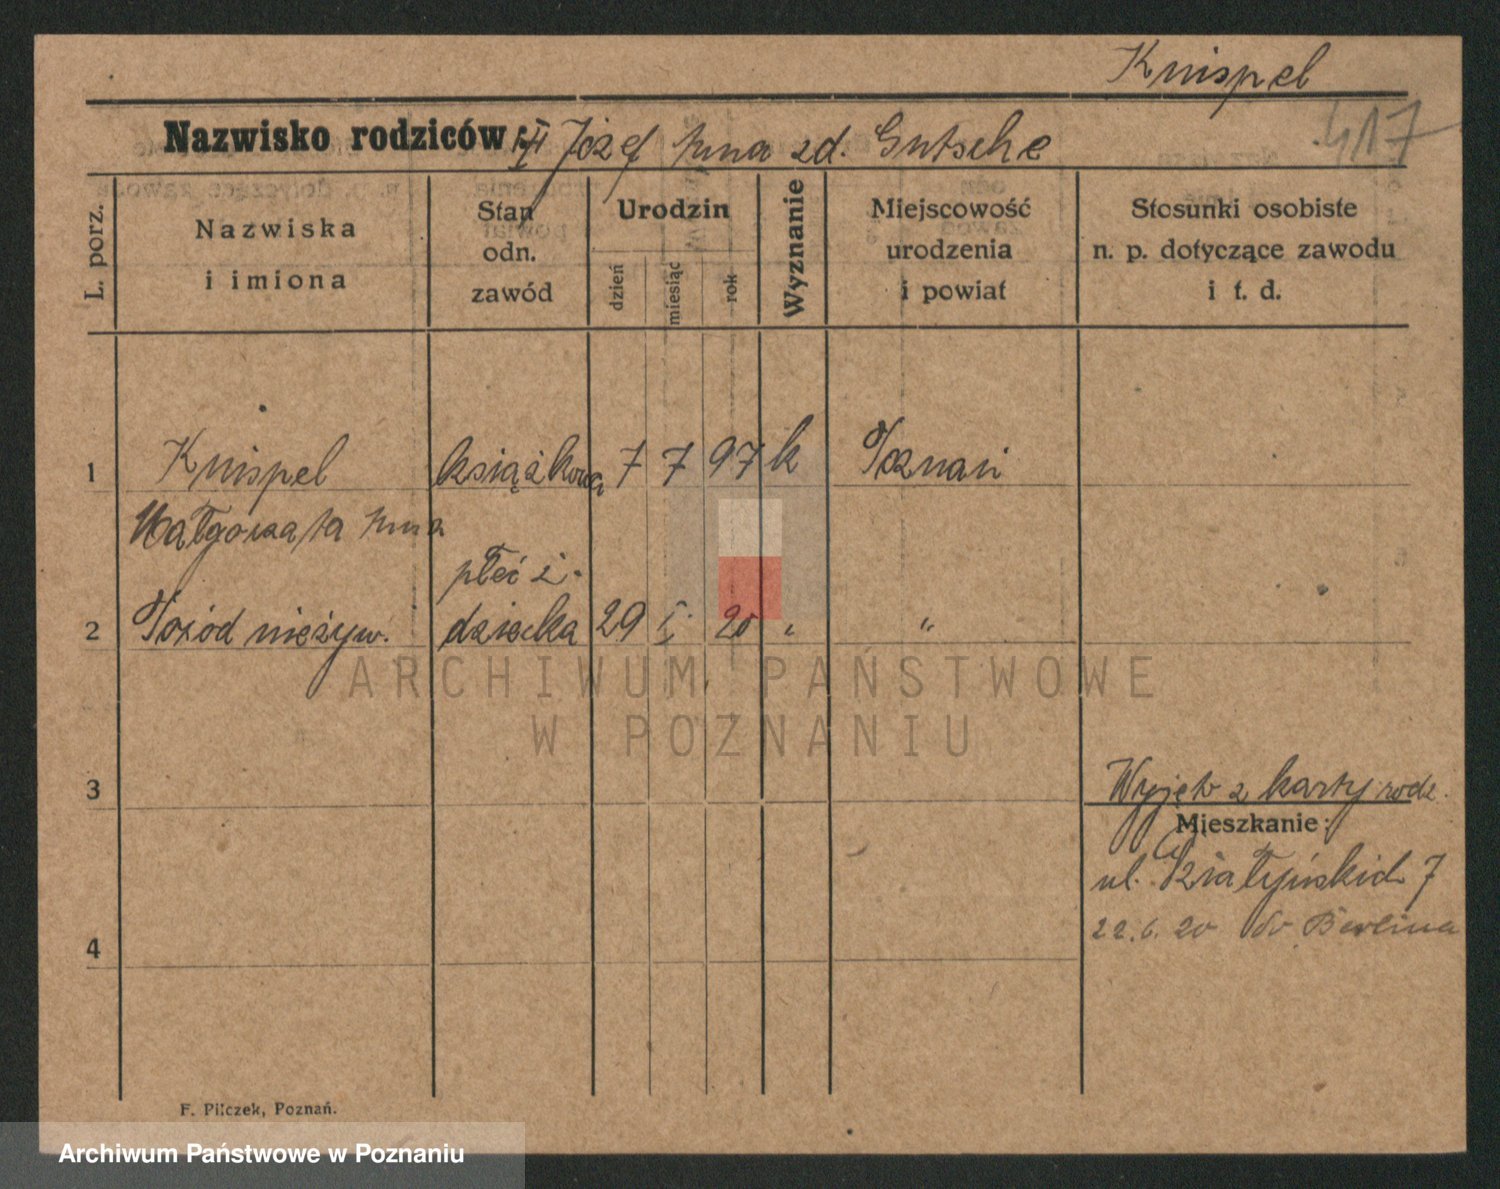 Knispel
Nazwisko rodziców: Józef Anna zd. Gutsche
417
L. porz.
Nazwiska
i imiona
Stan
odn.
zawód
Urodzin
dzień
miesiąc
rok
Wyznanie
Miejscowość
urodzenia
i powiat
Stosunki osobiste
n. p. dotyczące zawodu
i t. d.
1 Knispel książkowa 7 7 97 k Poznań
Małgorzata Anna
płeć ż.
2 Poród nieżyw. dziecka 29 I. 20 " "
ARCHIWUM PAŃSTWOWE
W POZNANIU
3
Wyjęto z karty rodz.
Mieszkanie:
ul. Działyńskich 7
22. 6. 20 do Berlina
4
F. Pilczek, Poznań.
Archiwum Państwowe w Poznaniu